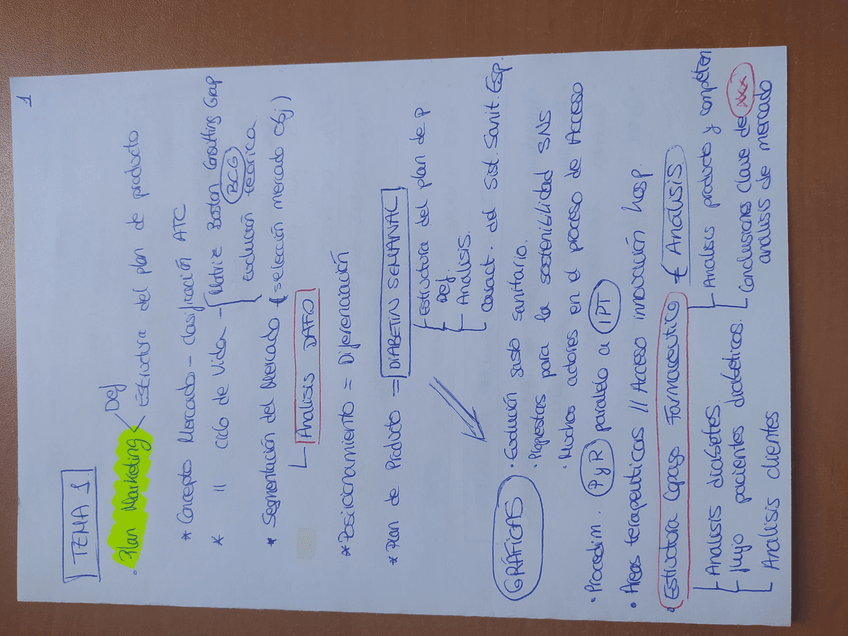 1
TEMA 1
· Plan Marketing
Def
Estructura del plan de producto
* Concepto Mercado - clasificación ATC
* " Ciclo de Vida - Matriz Boston Consulting Group
BCG
Evolución teórica
* Segmentación del Mercado (selección mercado obj)
Analisis DAFO
* Posicionamiento = Diferenciación
* Plan de Producto = DIABETIN SEMANAL
Estructura del plan de p
Def
Analisis.
Caract. del Sist. Sanit Esp.
GRÁFICAS
· Evolución gasto sanitario.
· Propuestas para la sostenibilidad SNS
· Muchos actores en el proceso de Acceso
· Procedim. PyR paralelo a IPT
· Areas terapeuticas // Acceso innovación hosp.
· Estructura Copago Farmaceutico + Analisis
Analisis diabetes
flujo pacientes diabéticos.
Analisis clientes
Analisis producto y competen
Conclusiones clave de xxx
analisis de mercado